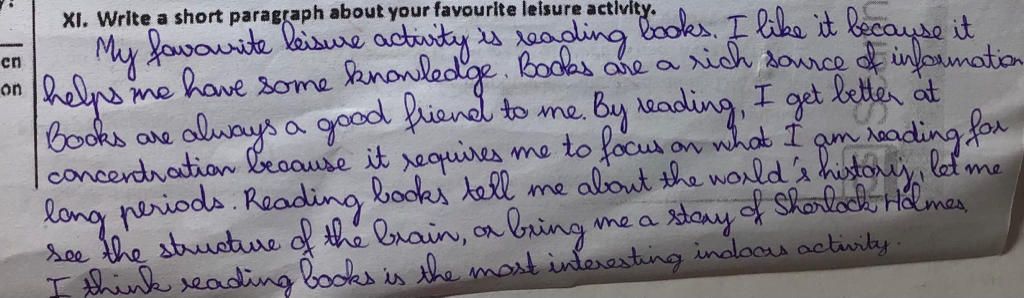 XI. Write a short paragraph about your favourite leisure activity.
My favourite leisure activity is reading books. I like it because it
en
helps me have some knowledge. Books are a rich source of information
on
Books are always a good friend to me. By reading, I get better at
concentration because it requires me to focus on what I am reading for
long periods. Reading books tell me about the world's history, let me
see the structure of the brain, or bring me a story of Sherlock Holmes.
I think reading books is the most interesting indoors activity.